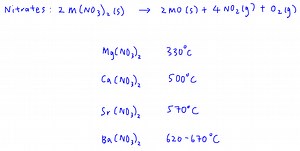 Nitrates: 2 M(NO₃)₂(s) → 2MO(s) + 4 NO₂(g) + O₂(g)
Mg(NO₃)₂ 330°C
Ca(NO₃)₂ 500°C
Sr(NO₃)₂ 570°C
Ba(NO₃)₂ 620-670°C